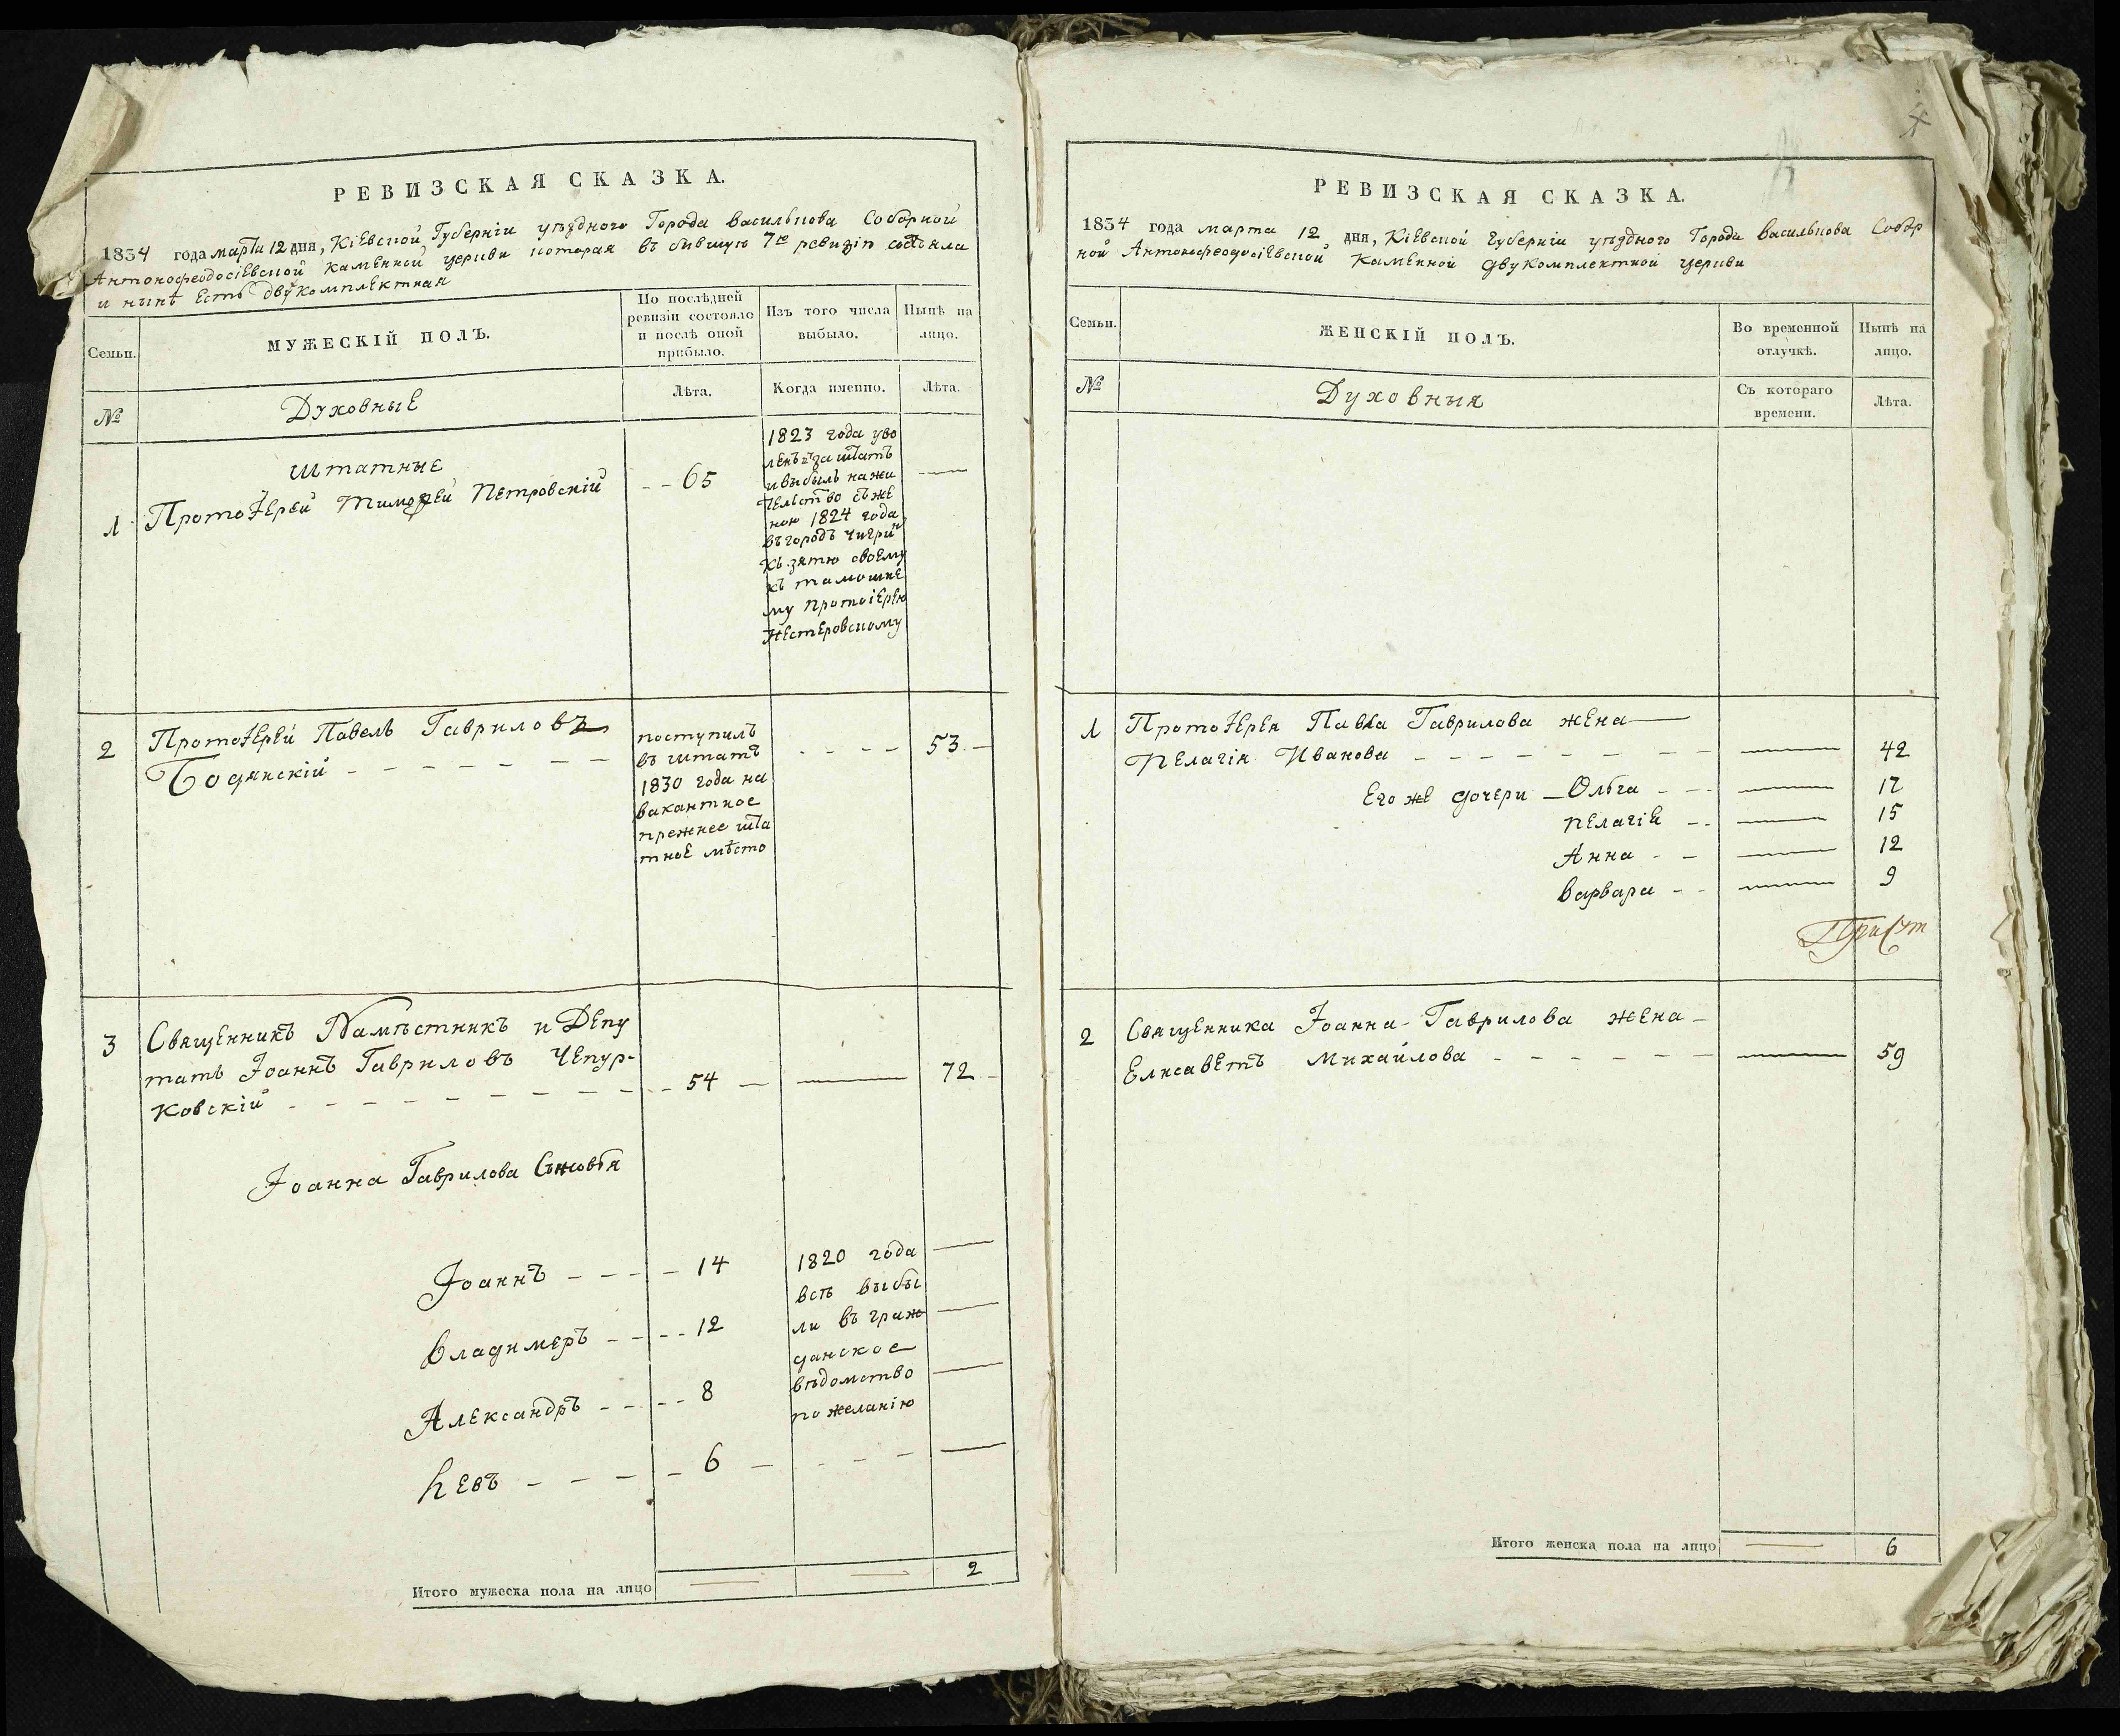 РЕВИЗСКАЯ СКАЗКА.
1834 года марта 12 дня, Кіевской Губерніи уѣзднаго Города Василькова Соборной
Антонофеодосіевской каменной церкви которая въ бывшую 7ю ревизію состояла
и нынѣ есть двукомплектная
Семьи.
МУЖЕСКІЙ ПОЛЪ.
По послѣдней
ревизіи состояло
и послѣ оной
прибыло.
Изъ того числа
выбыло.
Нынѣ на
лицо.
№
Духовные
Лѣта.
Когда именно.
Лѣта.
штатные
1 ПротоІерей Тимофей Петровскій -- 65 —
1823 года уво
ленъ за штатъ
и выбылъ на жи
тельство съ же
ною 1824 года
въ городъ Чигри
нъ
къ зятю своему
къ тамошне
му протоіерею
Нестеровскому
2 ПротоІерей Павелъ Гавриловъ
Бодянскій - - - - - - - - - - - 53 —
поступилъ
въ штатъ
1830 года на
вакантное
прежнее шта
тное мѣсто
3 Священникъ Намѣстникъ и Депу
татъ Іоаннъ Гавриловъ Чепур-
ковскій - - - - - - - - - 54 — — 72 -
Іоанна Гаврилова Сыновья
Іоаннъ - - - - 14 —
Владимеръ - - - - 12 —
Александръ - - - - 8 —
Левъ - - - - 6 — - - - —
1820 года
всѣ выбы
ли въ граж
данское
вѣдомство
по желанію
Итого мужеска пола на лицо — — 2
РЕВИЗСКАЯ СКАЗКА.
1834 года марта 12 дня, Кіевской Губерніи уѣзднаго Города Василькова Собор
ной Антонофеодосіевской каменной двукомплектной церкви
Семьи.
ЖЕНСКІЙ ПОЛЪ.
Во временной
отлучкѣ.
Нынѣ на
лицо.
№
Духовныя
Съ котораго
времени.
Лѣта.
1 ПротоІерея Павла Гаврилова жена —
Пелагія Иванова - - - - - - - - — 42
Его же дочери — Ольга - - - — 17
Пелагія - - — 15
Анна - - — 12
Варвара - - — 9
2 Священника Іоанна Гаврилова жена —
Елисаветъ Михайлова - - - - - - — 59
Итого женска пола на лицо — 6